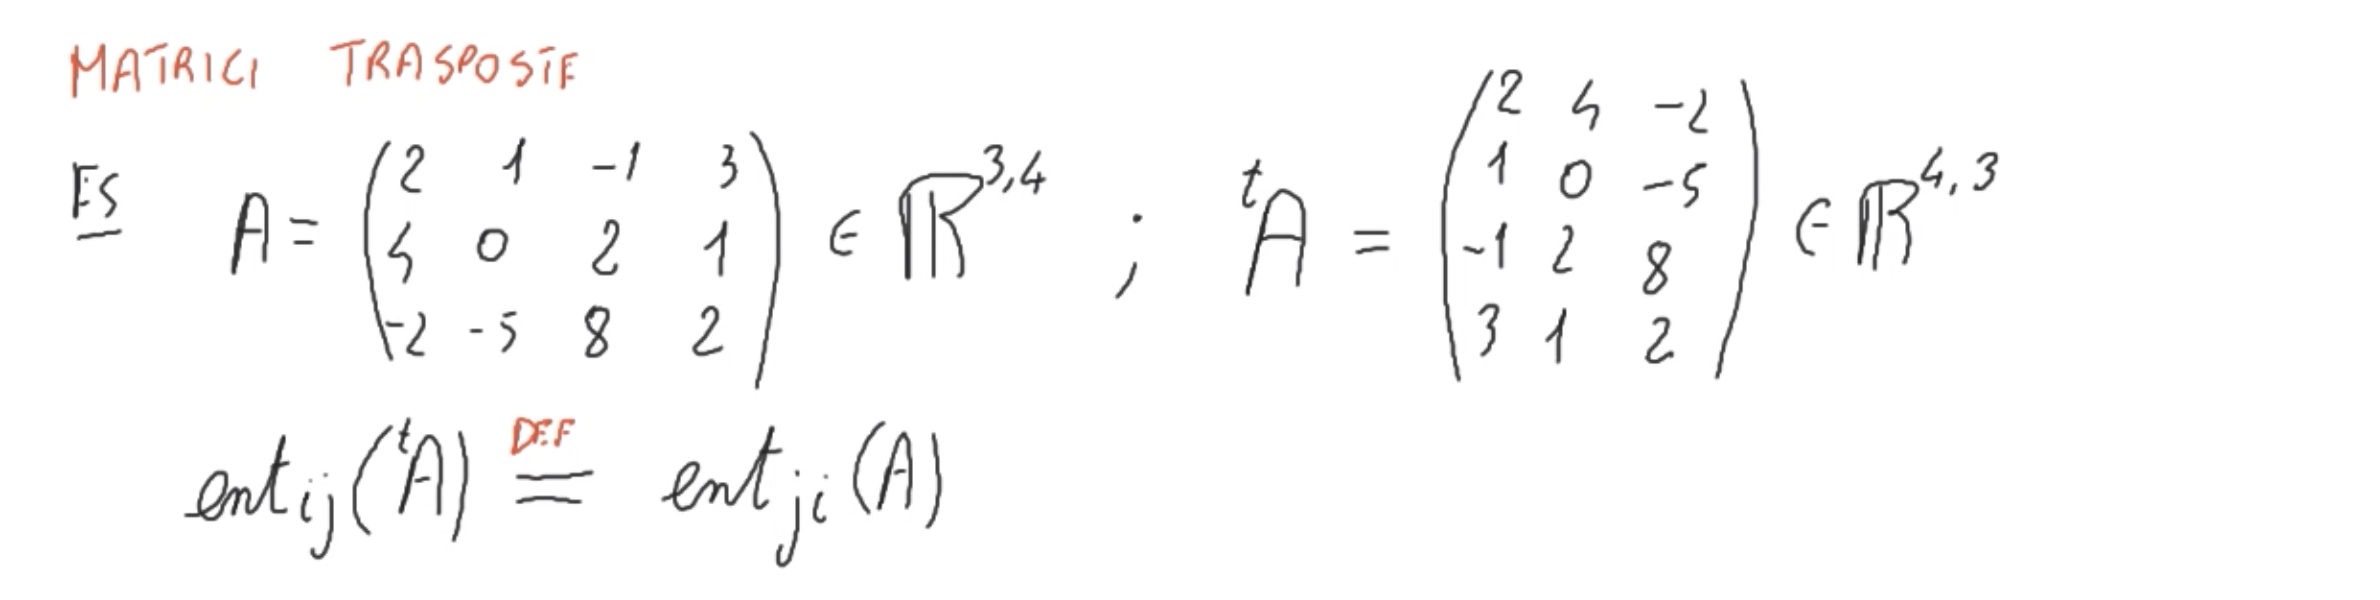 MATRICI TRASPOSTE
ES A = ( 2 1 -1 3 ; 4 0 2 1 ; -2 -5 8 2 ) ∈ ℝ^{3,4} ; ᵗA = ( 2 4 -2 ; 1 0 -5 ; -1 2 8 ; 3 1 2 ) ∈ ℝ^{4,3}
ent_{ij}(ᵗA) \overset{DEF}{=} ent_{ji}(A)